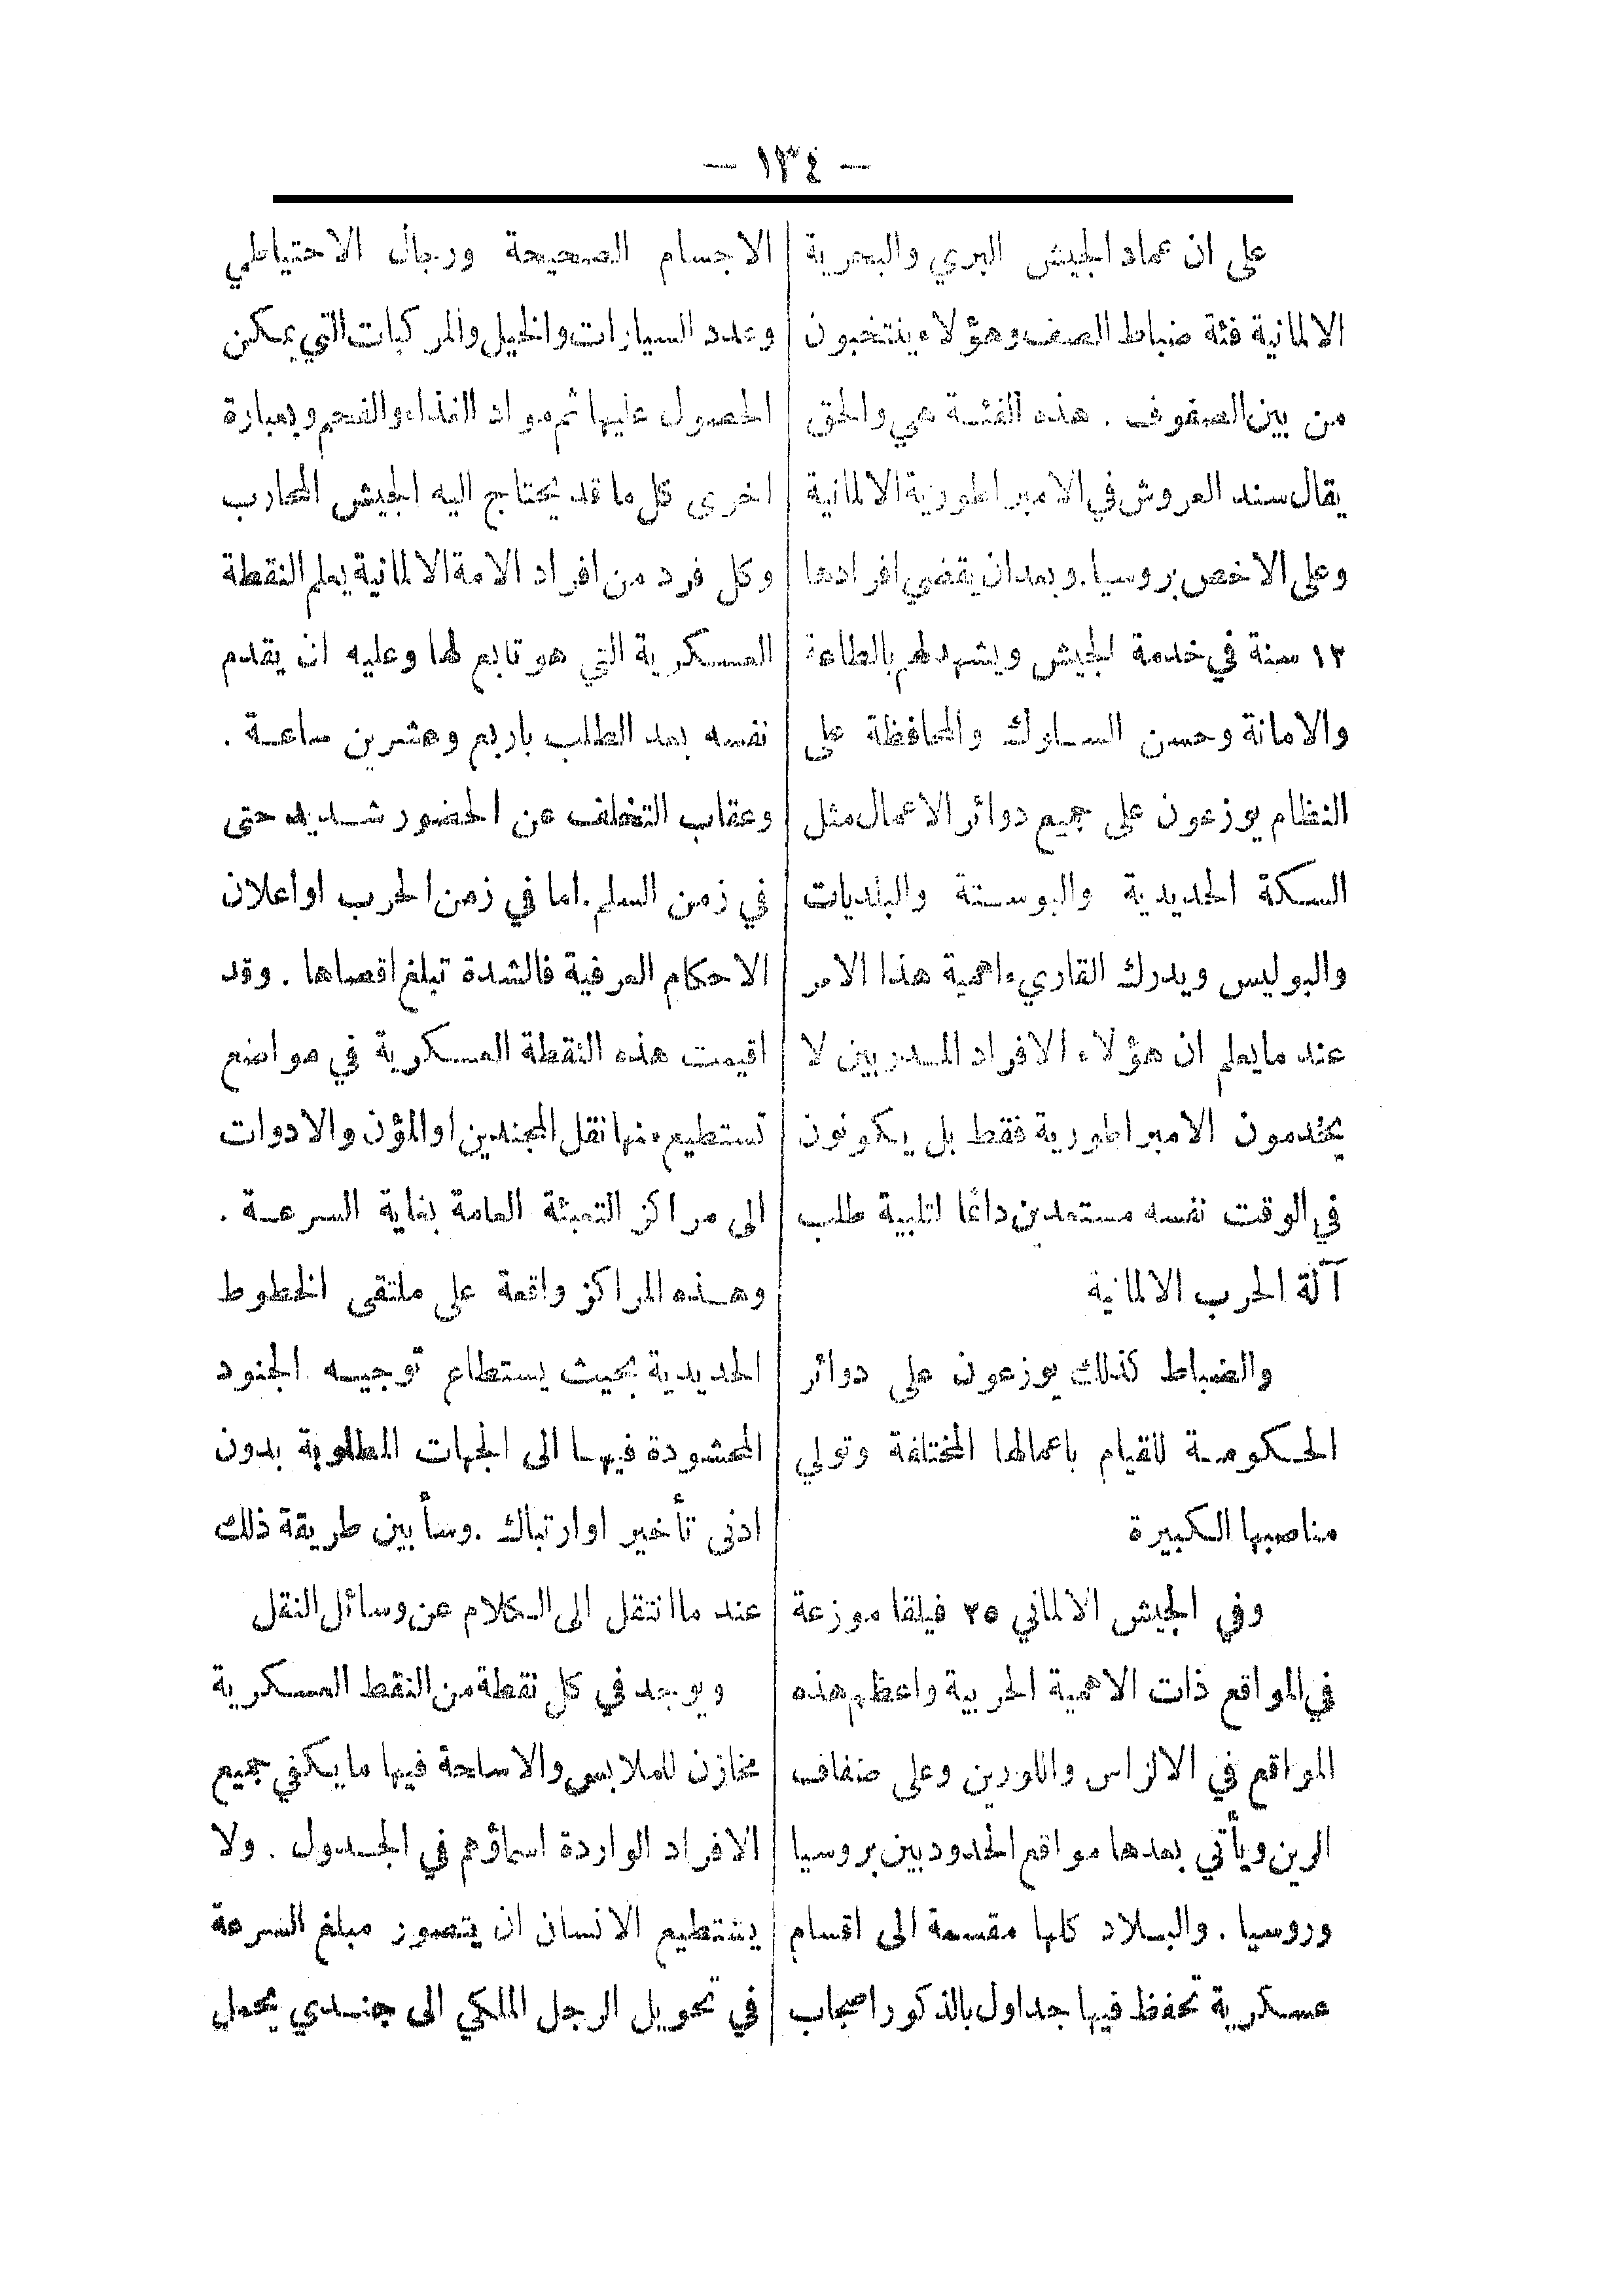 — ١٣٤ —
على ان عماد الجيش البري والبحرية
الالمانية فئة ضباط الصف وهؤلاء ينتخبون
من بين الصفوف . هذه الفئة هي والحق
يقال سند العروش في الامبراطورية الالمانية
وعلى الاخص بروسيا . وبعد ان يقضي افرادها
١٢ سنة في خدمة الجيش ويشهد لهم بالطاعة
والامانة وحسن السلوك والمحافظة على
النظام يوزعون على جميع دوائر الاعمال مثل
السكة الحديدية والبوستة والبلديات
والبوليس ويدرك القاريء اهمية هذا الامر
عند ما يعلم ان هؤلاء الافراد المدربين لا
يخدمون الامبراطورية فقط بل يكونون
في الوقت نفسه مستعدين دائما لتلبية طلب
آلة الحرب الالمانية
والضباط كذلك يوزعون على دوائر
الحكومة للقيام باعمالها المختلفة وتولي
مناصبها الكبيرة
وفي الجيش الالماني ٢٥ فيلقا موزعة
في المواقع ذات الاهمية الحربية واعظم هذه
المواقع في الالزاس واللورين وعلى ضفاف
الرين ويأتي بعدها مواقع الحدود بين بروسيا
وروسيا . والبلاد كلها مقسمة الى اقسام
عسكرية تحفظ فيها جداول بالذكور اصحاب
الاجسام الصحيحة ورجال الاحتياطي
وعدد السيارات والخيل والمركبات التي يمكن
الحصول عليها ثم مواد الغذاء والفحم وبعبارة
اخرى كل ما قد يحتاج اليه الجيش المحارب
وكل فرد من افراد الامة الالمانية يعلم النقطة
العسكرية التي هو تابع لها وعليه ان يقدم
نفسه بعد الطلب باربع وعشرين ساعة .
وعقاب التخلف عن الحضور شديد حتى
في زمن السلم . اما في زمن الحرب او اعلان
الاحكام العرفية فالشدة تبلغ اقصاها . وقد
اقيمت هذه النقطة العسكرية في مواضع
تستطيع منها نقل المجندين او المؤن والادوات
الى مراكز التعبئة العامة بغاية السرعة .
وهذه المراكز واقعة على ملتقى الخطوط
الحديدية بحيث يستطاع توجيه الجنود
المحشودة فيها الى الجهات المطلوبة بدون
ادنى تأخير او ارتباك . وسأبين طريقة ذلك
عند ما انتقل الى الكلام عن وسائل النقل
ويوجد في كل نقطة من النقط العسكرية
مخازن للملابس والاسلحة فيها ما يكفي جميع
الافراد الواردة اسماؤهم في الجدول . ولا
يستطيع الانسان ان يتصور مبلغ السرعة
في تحويل الرجل الملكي الى جندي يحمل